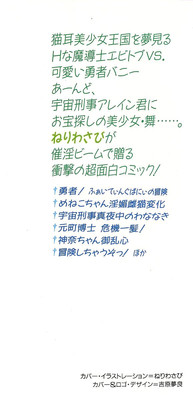 猫耳美少女王国を夢見る
Hな魔導士エビトプVS.
可愛い勇者バニー
あーんど、
宇宙刑事アレイン君に
お宝探しの美少女・舞……。
ねりわさびが
催淫ビームで贈る
衝撃の超面白コミック!
†勇者! ふぁいてぃんぐばにぃの冒険
†めねこちゃん淫媚雌猫変化
†宇宙刑事真夜中のわななき
†元町博士 危機一髪!
†神奈ちゃん御乱心
†冒険しちゃうぞっ! ほか
カバー・イラストレーション=ねりわさび
カバー&ロゴ・デザイン=吉原夢良